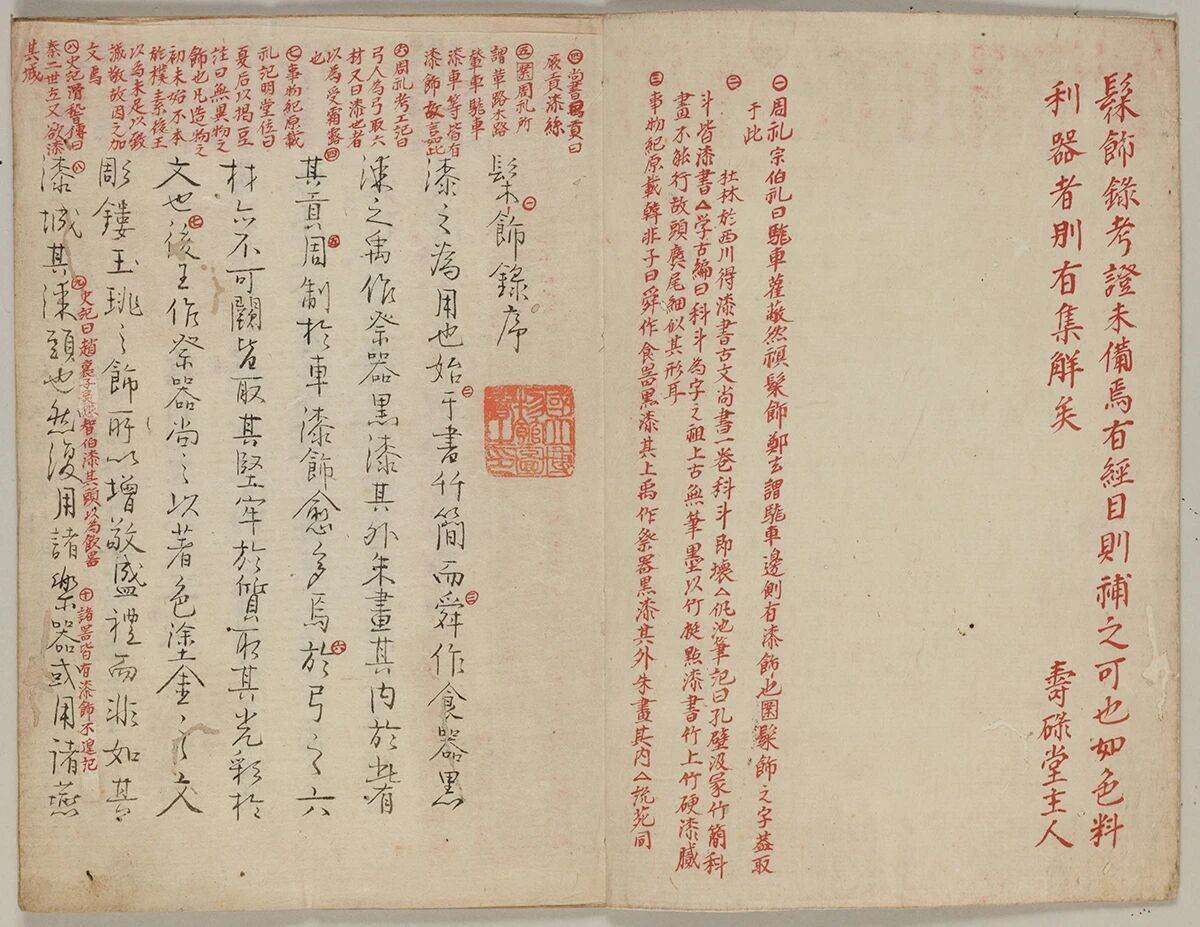 髹飾錄考證未備焉有經目則補之可也如色料
利器者別有集解矣
壽碌堂主人
㊀周礼宗伯礼曰駹車雚蔽然𧜀髹飾鄭玄謂駹車邊側有漆飾也髹飾之字蓋取
于此
㊁杜林於西川得漆書古文尚書一巻科斗即壊△仇池筆記曰孔壁汲冢竹簡科
斗皆漆書△学古編曰科斗為字之祖上古無筆墨以竹梃點漆書竹上竹硬漆膩
畫不能行故頭麁尾細似其形耳
㊂事物紀原載韓非子曰舜作食器黒漆其上禹作祭器黒漆其外朱畫其内△説苑同
㊃尚書禹貢曰
厥貢漆絲
㊄周礼所
謂革路木路
車駹車
漆車等皆有
漆飾故此
㊅周礼考工記曰
弓人為弓取六
材又曰漆也者
以為受霜露
也
㊆事物紀原載
礼記明堂位曰
夏后以楬豆
注曰無異物之
飾也凡造物之
初未始不本
於樸素後王
以為未足以致
誠敬故因之加
文焉
㊇史記滑稽傳曰
秦二世立又欲漆
其城
髹㊀飾錄序
漆之為用也始于㊁書竹簡而㊂舜作食器黒
漆之禹作祭器黒漆其外朱畫其内於此有
其㊃貢周㊄制於車漆飾愈多焉㊅於弓之六
材亦不可闕皆取其堅牢於質取其光彩於
文也㊆後王作祭器尚之以著色塗金之文
彫鏤玉珧之飾所以增敬盛禮而非如其
漆㊇城其㊈漆頭也然後用諸樂㊉器或用諸燕
㊈史記曰趙襄子智伯漆其頭以為飲器
㊉諸器皆有漆飾不遑記